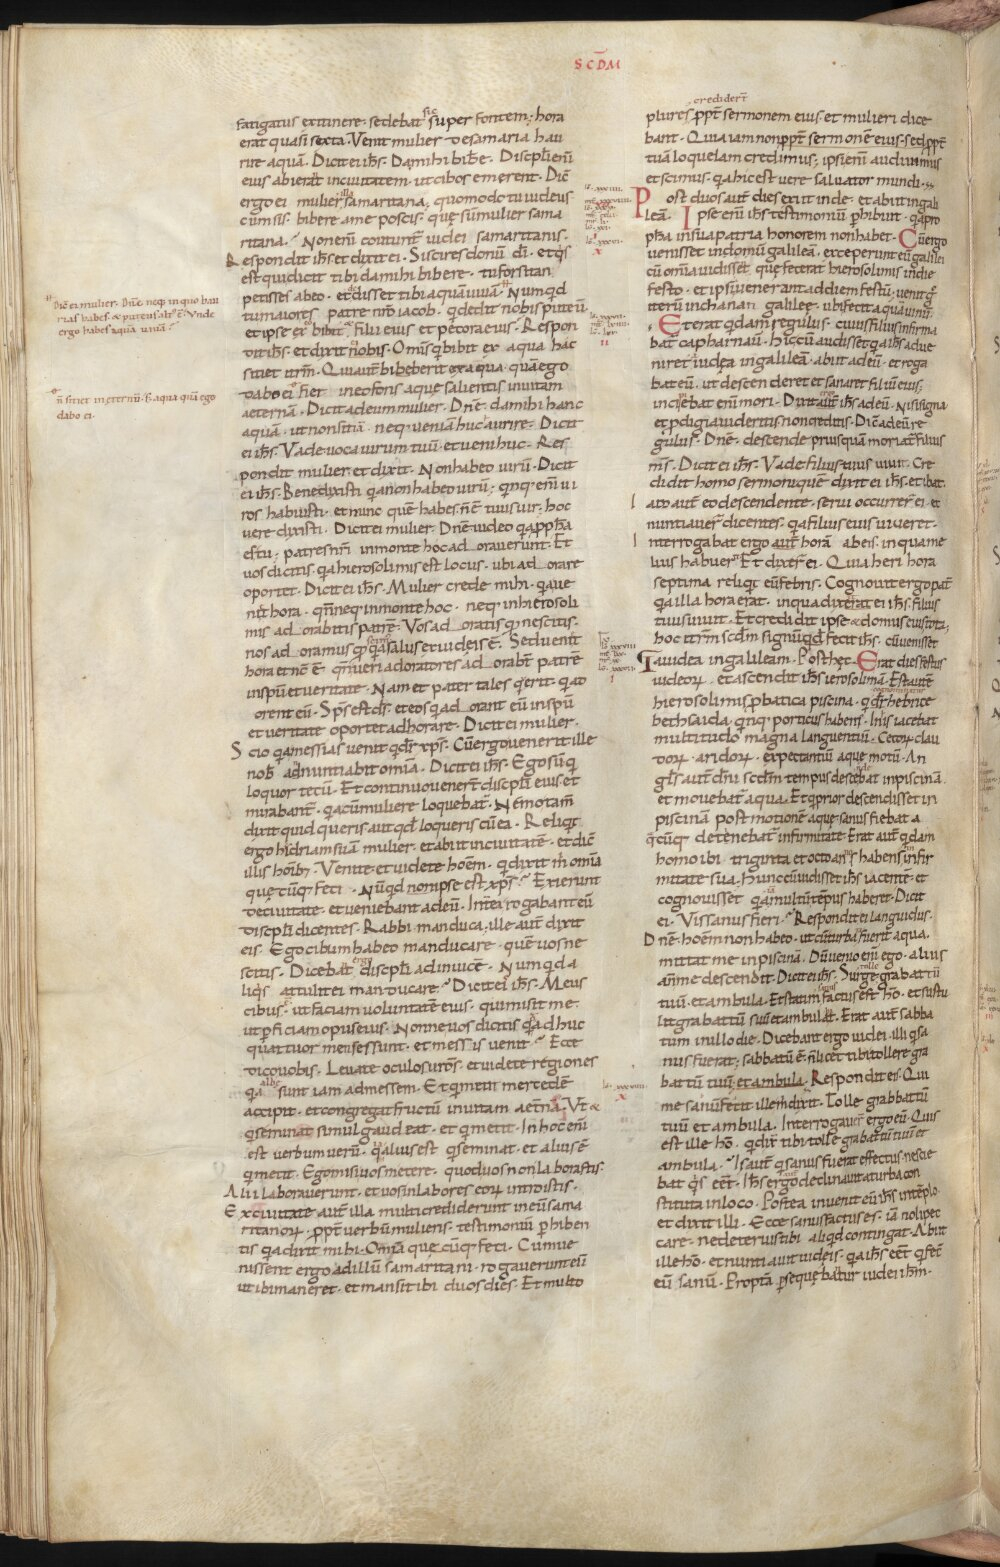 SCDM
fatigatus ex itinere· sedebat sic super fontem; hora
erat quasi sexta· Venit mulier de samaria hau
rire aquā· Dicit ei ihs· Da mihi bibere· Discipuli enī
eius abierant in civitatem· ut cibos emerent· Dic̄
ergo ei mulier illa samaritana, quomodo tu iudeus
cū missis· bibere a me poscis· quę sū mulier sama
ritana· Non enī coutunt̄ iudei samaritanis·
Respondit ihs et dixit ei· Si scires donū dī· et qs
est qui dicit tibi da mihi bibere· tu forsitan
petisses ab eo· et dedisset tibi aquā uiuā· Numqd
tu maior es patre nr̄o iacob· q dedit nobis puteū
et ipse ex eo bibit· filii eius et pecora eius· Respon
dit ihs· et dixit nobis· Omīs q bibit ex aqua hac
sitiet iterū· Qui aut̄ biberit ex aqua· quā ego
dabo ei fiet in eo fons aque salientis in uitam
aeternā· Dicit ad eum mulier· Dn̄e da mihi hanc
aquā· ut non sitiā neq· ueniā huc aurire· Dicit
ei ihs· Vade uoca uirum tuū· et ueni huc· Res
pondit mulier et dixit· Non habeo uirū· Dicit
ei ihs· Bene dixisti qa non habeo uirū; qnq· enī ui
ros habuisti· et nunc quē habes n̄ ē tuus uir; hoc
uere dixisti· Dicit ei mulier· Dn̄e uideo qa ppħa
es tu; patres nr̄i in monte hoc adorauerunt· Et
uos dicitis· qa hierosolimis est locus· ubi adorare
oportet· Dicit ei ihs· Mulier crede mihi· qa ue
nit hora· qn̄ neq· in monte hoc· neq· in hierosoli
mis adorabitis patrē· Vos adoratis q nescitis·
nos adoramus q scimus qa salus et iudeis ē· Sed uenit
hora et nc̄ ē· qn̄ ueri adoratores adorabt̄ patrē
in spū et ueritate· Nam et pater tales qerit· q ad
orent eū· Sp̄s est ds̄· et eos q adorant eū in spū
et ueritate oportet adhorare· Dicit ei mulier·
Scio qa messias uenit q dr̄ xp̄s· Cū ergo uenerit ille
nob̄ adnuntiabit omīa· Dicit ei ihs· Ego sū q
loquor tecū· Et continuo uener̄t discipli eius· et
mirabant̄· qa cū muliere loquebat̄· Nemo tam̄
dixit quid queris aut qd loqueris cū ea· Reliqt
ergo hidriam suā mulier· et abiit in ciuitatē· et dic̄
illis hōib;· Venite et uidete hoēm· q dixit m̄ omīa
quęcūq· feci· Nūqd non ipse est xp̄s· Exierunt
de ciuitate· et ueniebant ad eū· Intēa rogabant eū
discipli dicentes· Rabbi manduca; ille aut̄ dixit
eis· Ego cibum habeo manducare· quē uos ne
scitis· Dicebāt ergo discipli ad inuicē· Numqd a
liqs attulit ei manducare· Dicit ei ihs· Meus
cibus· ut faciam uoluntatē eius· qui misit me·
ut pficiam opus eius· Nonne uos dicitis qa adhuc
quattuor menses sunt· et messis uenit· Ecce
dico uobis· Leuate oculos uros̄· et uidete regiones
qa albe sunt iam ad messem· Et q metit mercedē
accipit· et congregat fructū in uitam aetnā· Vt &
q seminat simul gaudeat· et q metit· In hoc enī
est uerbum uerū· q alius est q seminat· et alius ē
q metit· Ego misi uos metere· quod uos non laborastis·
Alii laborauerunt· et uos in labores eor̄ introistis·
Ex ciuitate aut̄ illa multi crediderunt in eū sama
ritanor̄· ppt̄ uerbū mulieris· testimoniū phiben
tis qa dixit mihi· Omīa quęcūq· feci· Cum ue
nissent ergo ad illū samaritani· rogauerunt eū
ut ibi maneret· et mansit ibi duos dies· Et multo
"Dic̄ ei mulier· Dn̄e neq· in quo hau
rias habes· & puteus alt̄ ē· Vnde
ergo habes aquā uiuā·
n̄ sitiet in eternū· S; aqua quā ego
dabo ei·
crediderr̄
plures ppt̄ sermonem eius· et mulieri dice
bant· Quia iam non ppt̄ sermonē eius· sed ppt̄
tuā loquelam credimus; ipsi enī audiuimus
et scimus· qa hic est uere saluator mundi·
Post duos aut̄ dies exiit inde· et abiit in gali
leā· Ipse enī ihs testimoniū phibuit· qa pro
pħa in sua patria honorem non habet· Cū ergo
uenisset in domū galileā· exceperunt eū galilei
cū omīa uidissēt quę fecerat hierosolimis in die
festo· et ipsi uenerant ad diem festū; uenit ḡ
iterū in chanan galileę· ubi fecit aquā uinū·
Et erat qdam regulus· cuius filius infirma
bat capharnaū· Hic cū audisset qa ihs adue
niret iudea in galileā· abiit ad eū· et roga
bat eū, ut descenderet et sanaret filiū eius;
incipiebat enī mori· Dixit ergo ihs ad eū· Nisi signa
et pdigia uideritis· non creditis· Dic̄ ad eū re
gulus· Dn̄e descende prius quā moriat̄ filius
ms̄· Dicit ei ihs· Vade filius tuus uiuit· Cre
didit homo sermoni quē dixit ei ihs· et ibat·
Iam aut̄ eo descendente· serui occurrer̄ ei· et
nuntiauer̄ dicentes· qa filius eius uiueret·
Interrogabat ergo aut̄ horā ab eis· in qua me
lius habuer̄ Et dixer̄ ei· Quia heri hora
septima reliqt eū febris· Cognouit ergo pat̄
qa illa hora erat· in qua dixerat ei ihs· filius
tuus uiuit· Et credidit ipse & domus eius tota;
hoc iterm̄ scdm̄ signū qd fecit ihs· cū uenisset
a iudea in galileam· Post hęc· Erat dies festus
iudeor̄· et ascendit ihs ierosolimā· Est aut̄
hierosolimis pbatica piscina· q dr̄ hebrice
cognominatur
bethsaida qnq· porticus habens· In is iacebat
multitudo magna languentiū· Cecor̄ clau
dor̄· aridor̄· expectantiū aque motū· An
gls̄ aut̄ dn̄i scdm̄ tempus descēdebat in piscinā·
et mouebat̄ aqua· Et q prior descendisset in
piscinā post motionē aque· sanus fiebat a
qacūq· detenebat̄ infirmitate· Erat aut̄ qdam
homo ibi· triginta et octo annos habens in infir
mitate sua· Hunc cū uidisset ihs iacentē· et
cognouisset qa multū tēpus haberet· Dicit
ei· Vis sanus fieri· Respondit ei languidus·
Dn̄e· hoēm non habeo· ut cū turba fuerit aqua·
mittat me in piscinā· Dū uenio enī ego· alius
an̄ me descendit· Dicit ei ihs· Surge tolle grabattū
tuū· et ambula· Et statim factus sanus est hō· et sustu
lit grabattū suū et ambulat̄· Erat aut̄ sabba
tum in illo die· Dicebant ergo iudei· illi q sa
nus fuerat; sabbatū ē· n̄ licet tibi tollere gra
battū tuū et ambula· Respondit eis· Qui
me sanū fecit ille m̄ dixit· Tolle grabbattū
tuū et ambula· Interrogauer̄ ergo eū· Quis
est ille hō· q dix̄ tibi tolle grabattū tuū et
ambula· Is aut̄ q sanus fuerat effectus· nescie
bat qs eēt· Ihs ergo declinauit a turba con
stituta in loco· Postea inuenit eū ihs in tēplo·
et dixit illi· Ecce sanus factus es· iā noli pec
care· ne deterius tibi aliqd contingat· Abiit
ille hō· et nuntiauit iudeis· qa ihs eēt q fecit
eū sanū· Propterea psequębatur iudei ihm̄·